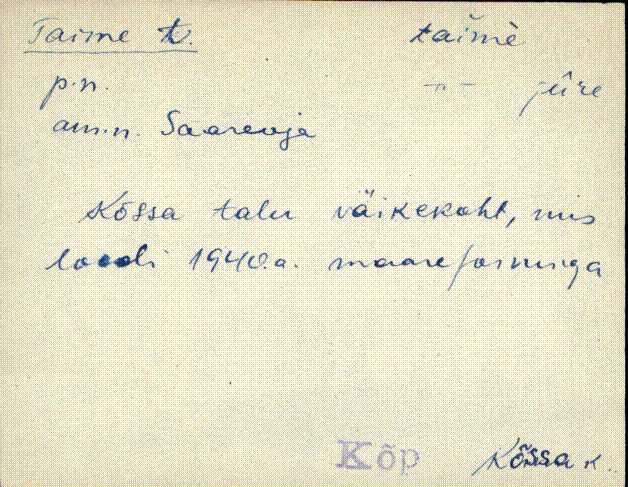 Taime t. taime
p.n. -"- jüre
am.n. Saareoja
Kõssa talu väikekoht, mis
loodi 1940.a. maareformiga
Kõp Kõssa k.